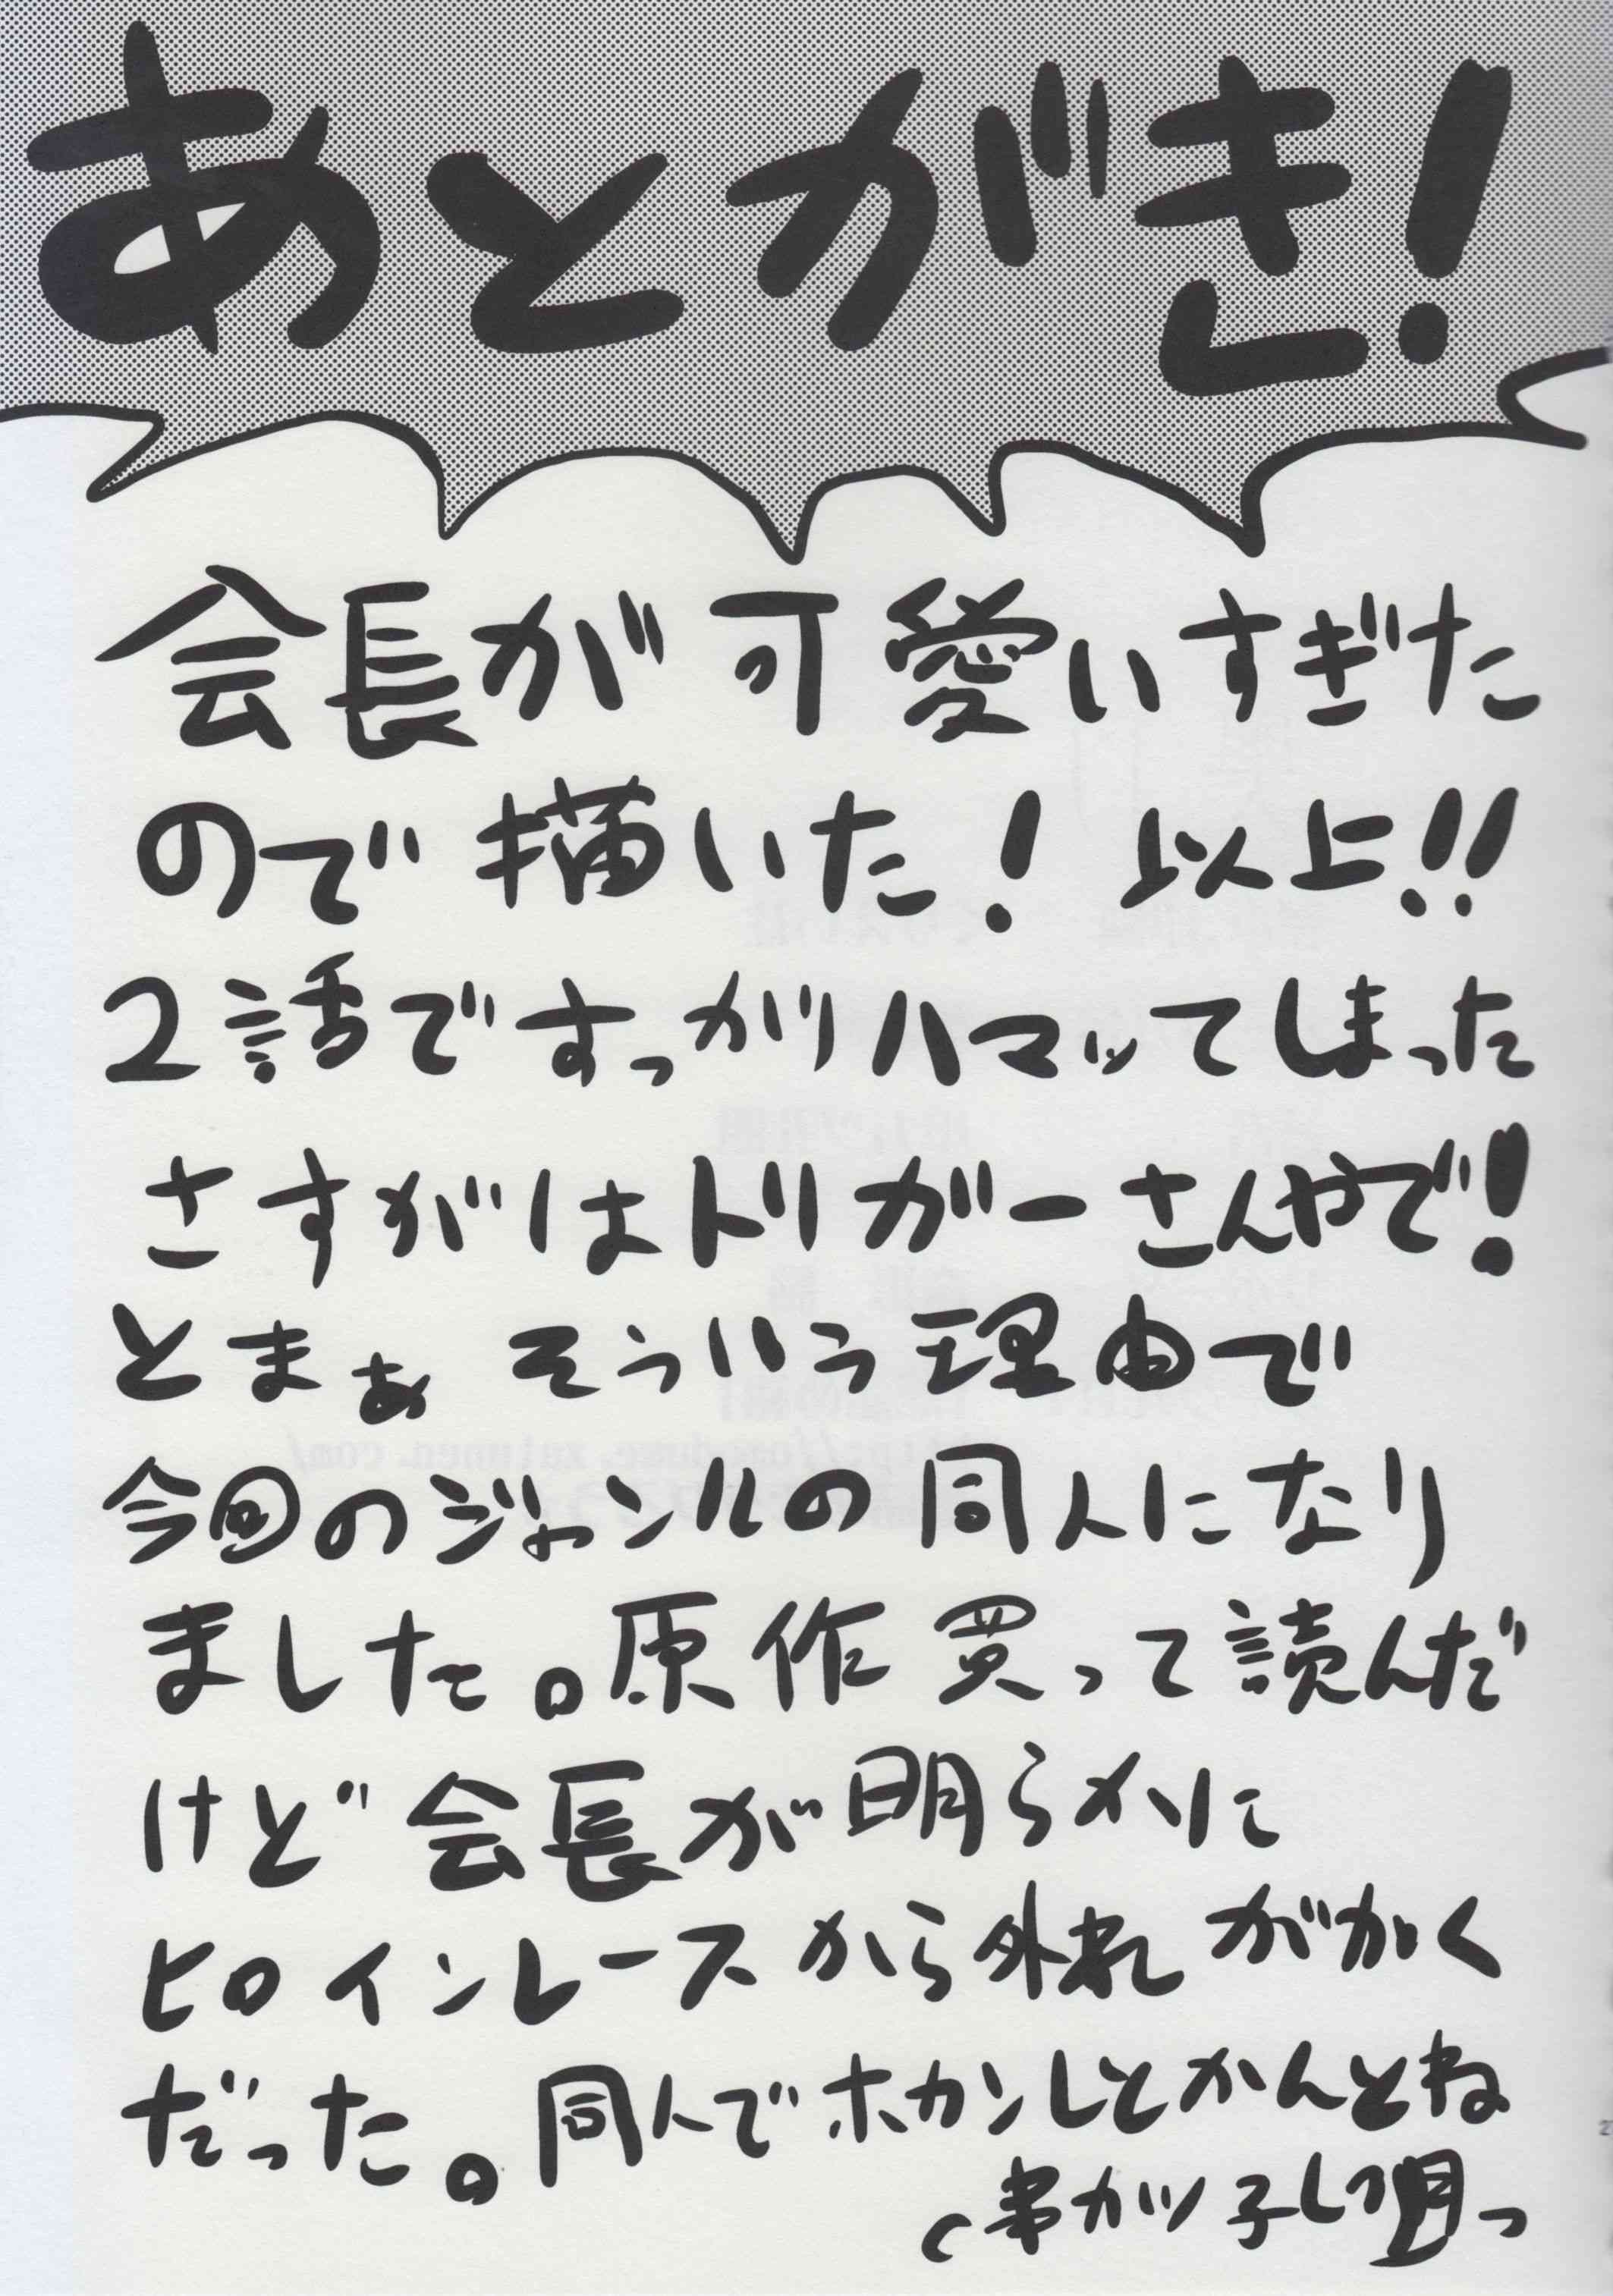 あとがき!
会長が可愛いすぎた
ので描いた! 以上!!
2話ですっかりハマッてしまった
さすがはトリガーさんやで!
とまぁ そういう理由で
今回のジャンルの同人になり
ました。原作買って読んだ
けど会長が明らかに
ヒロインレースから外れがかく
だった。同人でホカンしとかんとね
串カツ